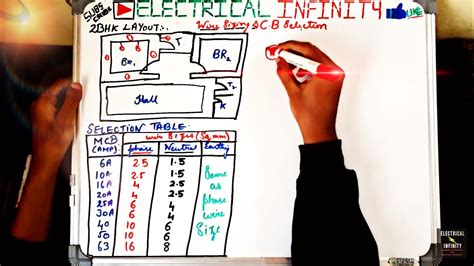 SUBSCRIBE ELECTRICAL INFINITY LIKE
2BHK LAYOUT:. Wire Sizing & C.B Selection
T
BR1 BR2
Hall T2
K
SELECTION TABLE
MCB (AMP) Wire Sizes (Sq.mm)
Phase Neutral Earthing
6A 2.5 1.5
10A 2.5 1.5 Same
16A 4 2.5 as
20A 4 2.5 phase
25A 6 4
30A 6 4 wire
40 10 6 Size
50 10 6
63 16 8
ELECTRICAL
INFINITY